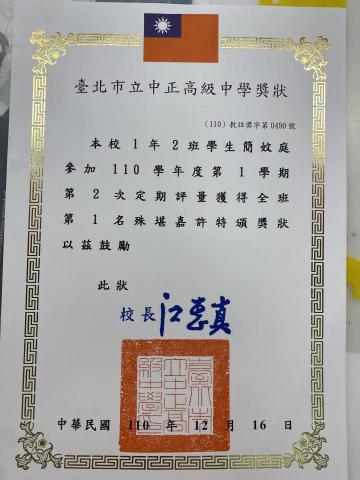 臺北市立中正高級中學獎狀
(110)教註獎字第0490號
本校1年2班學生簡妏庭
參加110學年度第1學期
第2次定期評量獲得全班
第1名殊堪嘉許特頒獎狀
以茲鼓勵
此狀
校長江惠真
臺北市
立中正高
級中學
中華民國 110 年 12 月 16 日